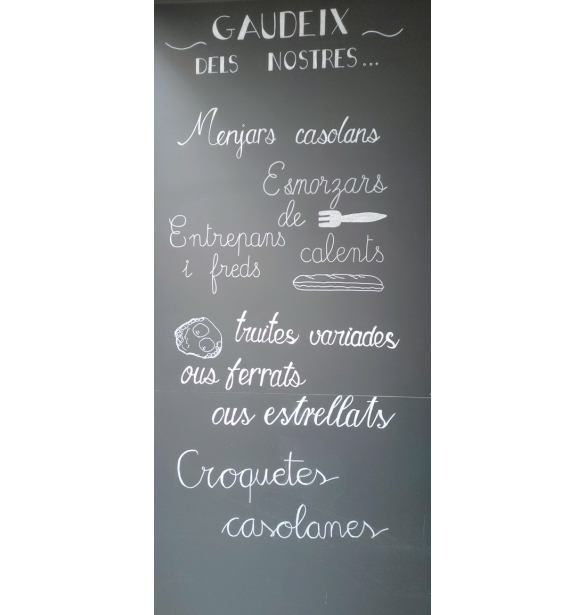 GAUDEIX
DELS NOSTRES...
Menjars casolans
Esmorzars
de
Entrepans calents
i freds
truites variades
ous ferrats
ous estrellats
Croquetes
casolanes